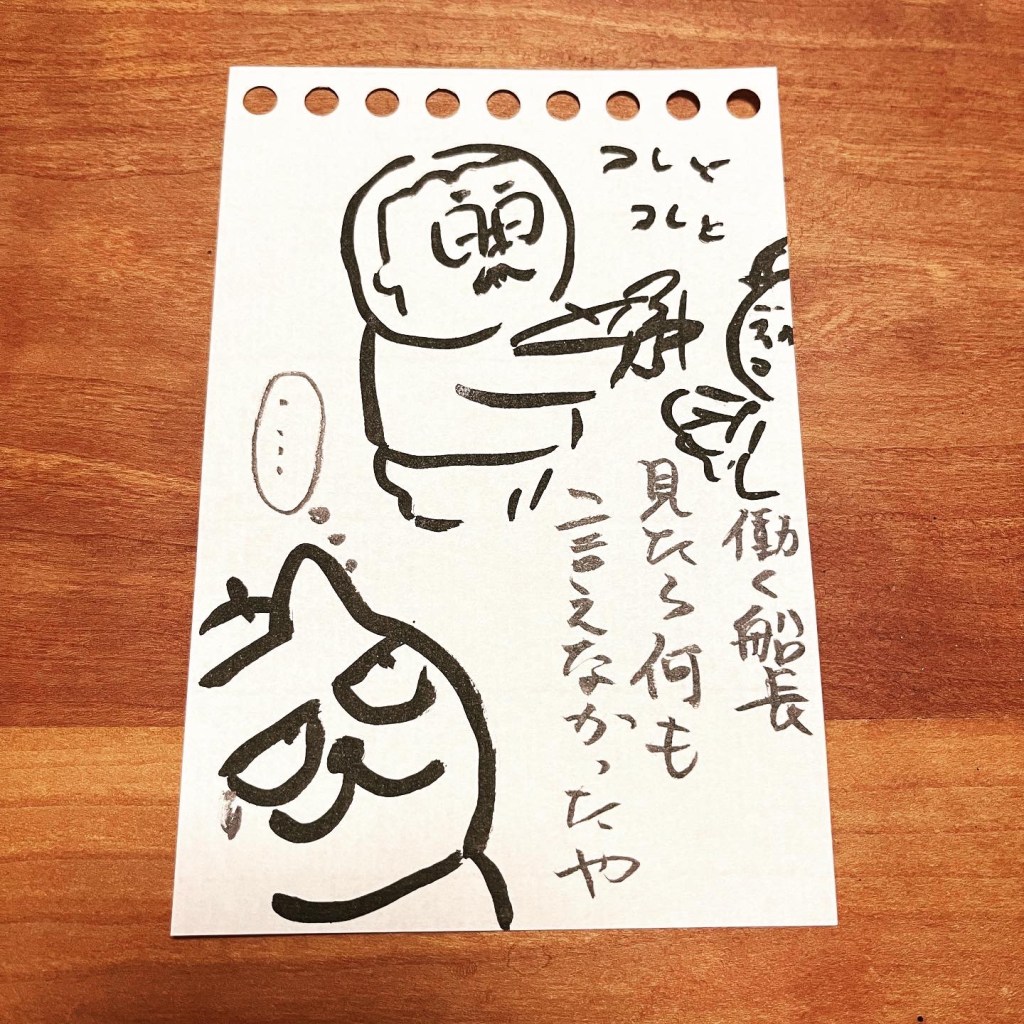 コレと
コレと
働く船長
見たら何も
言えなかったや